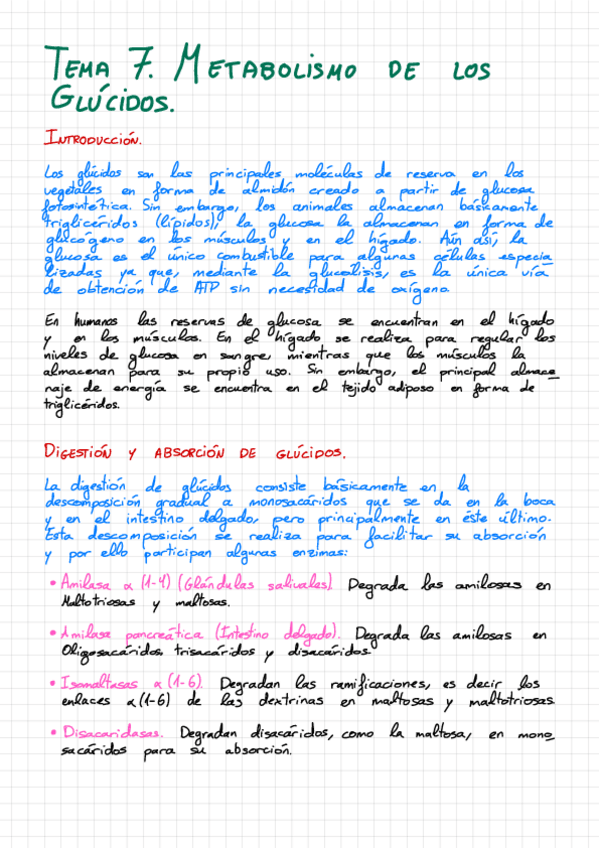 TEMA 7. METABOLISMO DE LOS
GLÚCIDOS.
INTRODUCCIÓN.
Los glúcidos son las principales moléculas de reserva en los
vegetales en forma de almidón creado a partir de glucosa
fotosintética. Sin embargo, los animales almacenan básicamente
triglicéridos (lípidos), la glucosa la almacenan en forma de
glucógeno en los músculos y en el hígado. Aún así, la
glucosa es el único combustible para algunas células especia
lizadas ya que, mediante la glucólisis, es la única vía
de obtención de ATP sin necesidad de oxígeno.
En humanos las reservas de glucosa se encuentran en el hígado
y en los músculos. En el hígado se realiza para regular los
niveles de glucosa en sangre, mientras que los músculos la
almacenan para su propio uso. Sin embargo, el principal almace_
naje de energía se encuentra en el tejido adiposo en forma de
triglicéridos.
DIGESTIÓN Y ABSORCIÓN DE GLÚCIDOS.
La digestión de glúcidos consiste básicamente en la
descomposición gradual a monosacáridos que se da en la boca
y en el intestino delgado, pero principalmente en éste último.
Esta descomposición se realiza para facilitar su absorción
y por ello participan algunas enzimas:
• Amilasa α (1-4) (Glándulas salivales). Degrada las amilosas en
Maltotriosas y maltosas.
• Amilasa pancreática (Intestino delgado). Degrada las amilosas en
Oligosacáridos, trisacáridos y disacáridos.
• Isomaltasas α (1-6). Degradan las ramificaciones, es decir los
enlaces α(1-6) de las dextrinas en maltosas y maltotriosas
• Disacaridasas. Degradan disacáridos, como la maltosa, en mono_
sacáridos para su absorción.